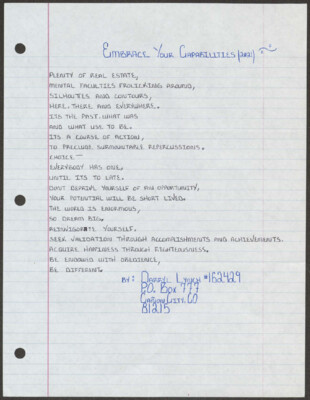 EMBRACE YOUR CAPABILITIES
PLENTY OF REAL ESTATE,
MENTAL FACULTIES FROLICKING AROUND,
SILHOUTES AND CONTOURS,
HERE, THERE AND EVERYWHERE.
ITS THE PAST. WHAT WAS
AND WHAT USE TO BE.
ITS A COURSE OF ACTION,
TO PRECLUDE SURMOUNTABLE REPERCUSSIONS.
CHOICE -
EVERYBODY HAS ONE,
UNTIL ITS TO LATE.
DON'T DEPRIVE YOURSELF OF ANY OPPORTUNITY,
YOUR POTENTIAL WILL BE SHORT LIVED.
THE WORLD IS ENORMOUS,
SO DREAM BIG.
REINVIGORATE YOURSELF.
SEEK VALIDATION THROUGH ACCOMPLISHMENTS AND ACHIEVEMENTS.
ACQUIRE HAPPINESS THROUGH RIGHTEOUSNESS.
BE ENDOWED WITH OBEDIENCE,
BE DIFFERENT.
BY: DARRYL LYNCH #162429
P.O. BOX 777
CAÑON CITY, CO
81215